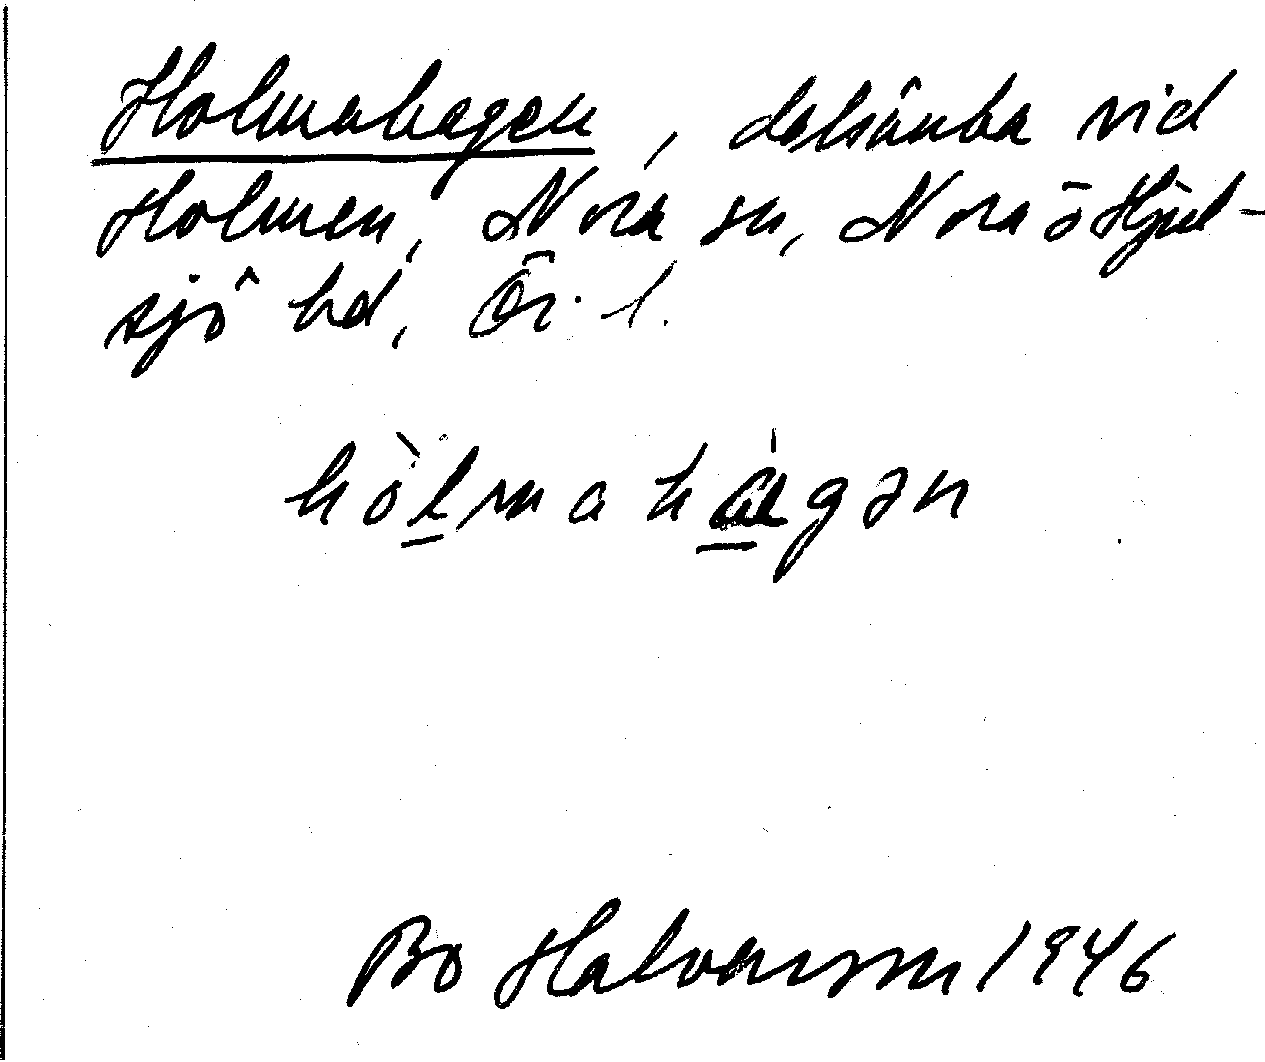 Holmahagen, dalsänka vid
Holmen, Nora sn, Nora ö Hjul-
sjö hd, Ör. l.
hòlmahàgən
Bo Halvarsson 1946